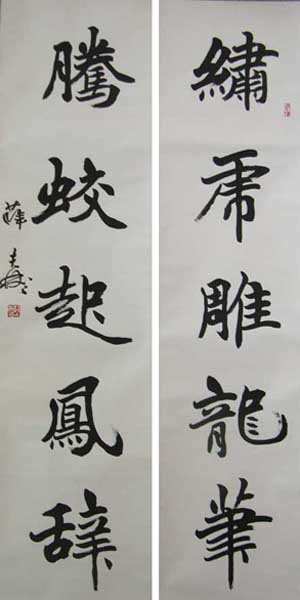 繡虎雕龍筆
騰蛟起鳳辭
薛夫彬